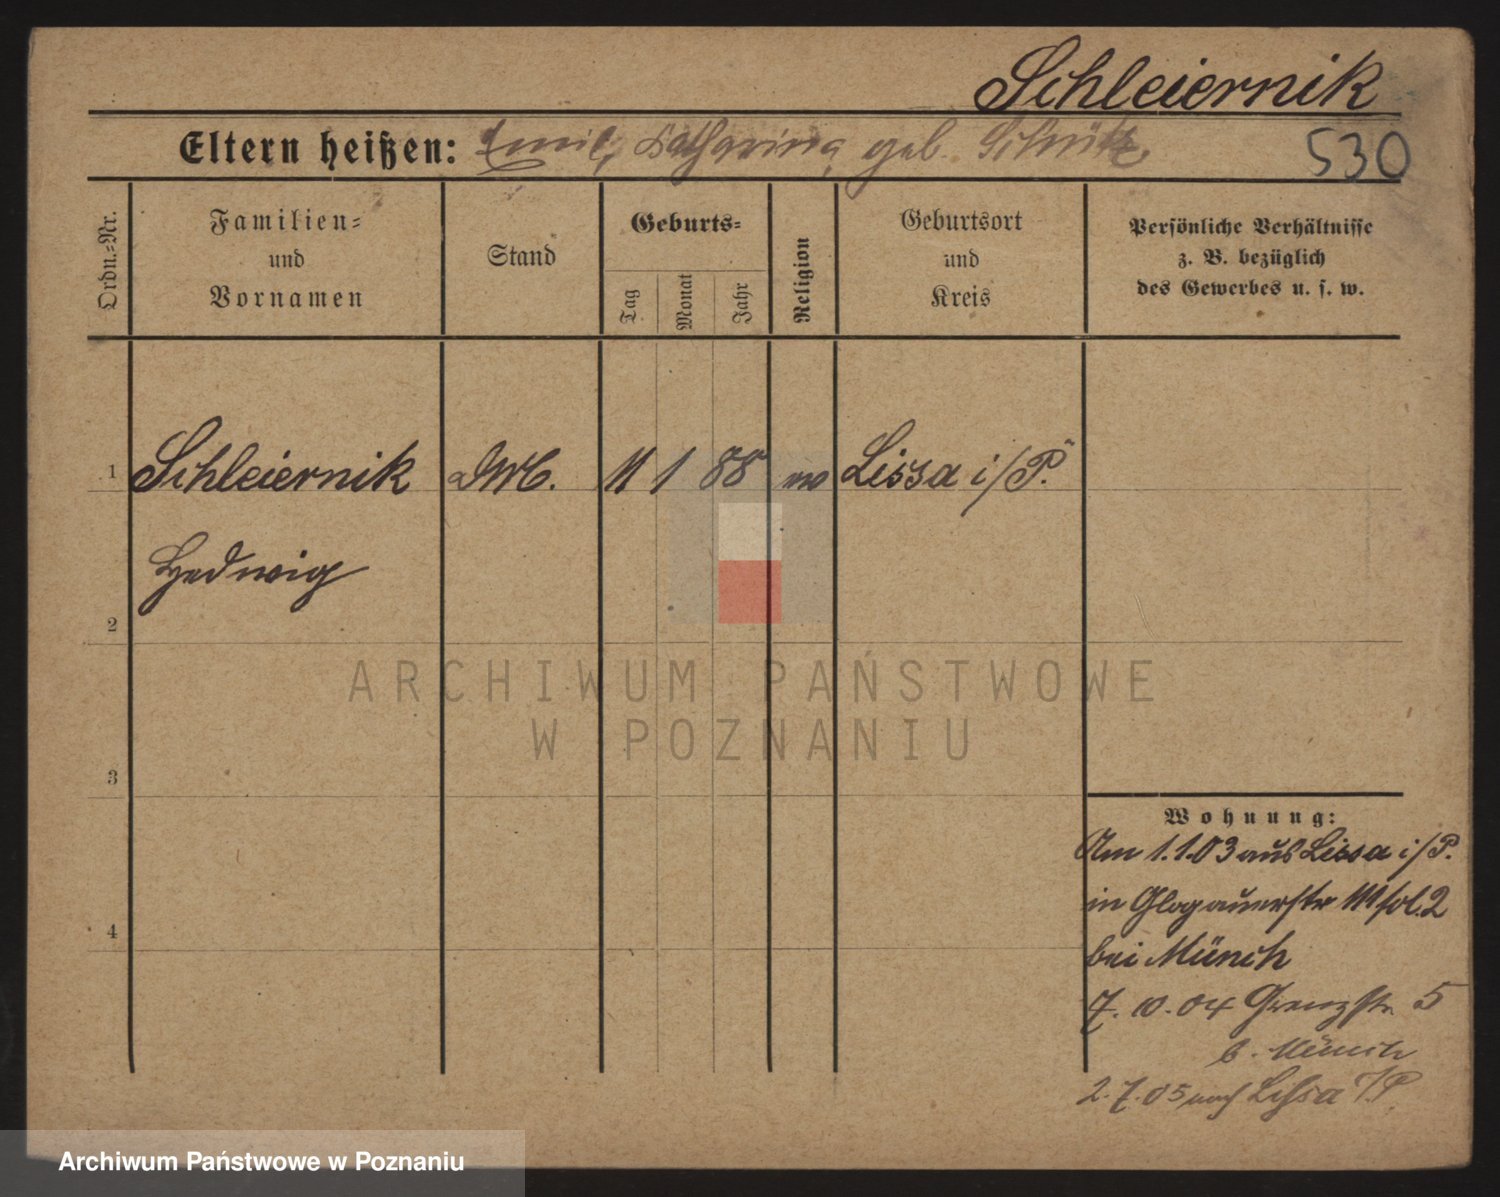 Schleiernik
Eltern heißen: Emil, Katharina, geb. Schütz
530
Ordn.-Nr.
Familien-
und
Vornamen
Stand
Geburts-
Tag
Monat
Jahr
Religion
Geburtsort
und
Kreis
Persönliche Verhältnisse
z. B. bezüglich
des Gewerbes u. s. w.
1 Schleiernik 11 1 88 Lissa i/P.
Hedwig
2
3
4
Wohnung:
Am 1.1.03 aus Lissa i/P.
in Glogauerstr 111 2
bei Münch
7. 10. 04 Grenzstr 5
b. Münch
2. 7. 05 nach Lissa i/P
ARCHIWUM PAŃSTWOWE
W POZNANIU
Archiwum Państwowe w Poznaniu